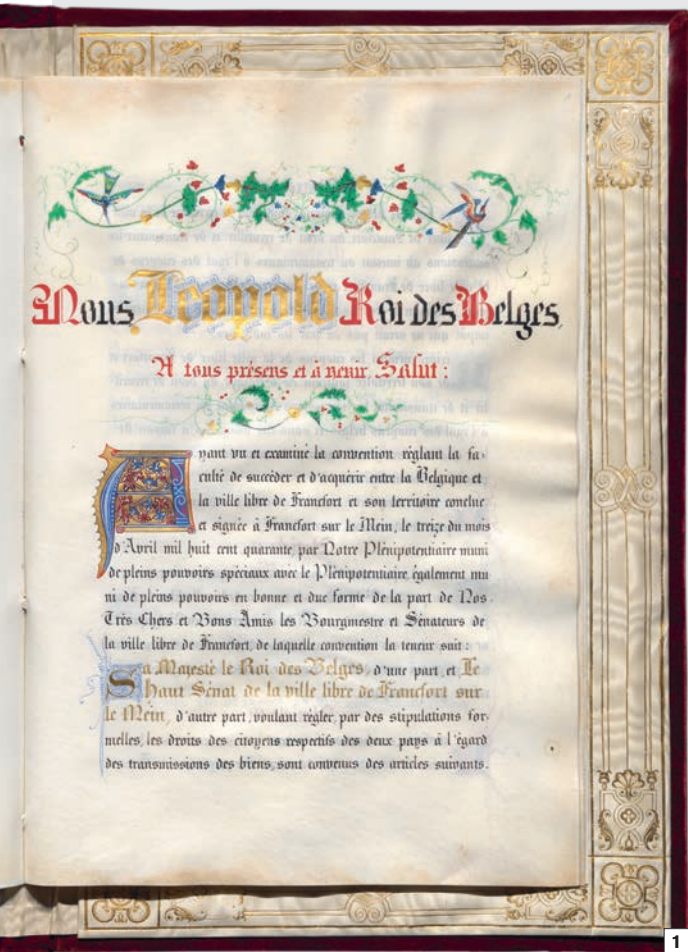 Nous Leopold Roi des Belges,
A tous présens et à venir, Salut :
Ayant vu et examiné la convention réglant la fa-
culté de succéder et d'acquérir entre la Belgique et
la ville libre de Francfort et son territoire conclue
et signée à Francfort sur le Mein, le treize du mois
d'Avril mil huit cent quarante par Notre Plénipotentiaire muni
de pleins pouvoirs spéciaux avec le Plénipotentiaire également mu
ni de pleins pouvoirs en bonne et due forme de la part de Nos
Très Chers et Bons Amis les Bourgmestre et Sénateurs de
la ville libre de Francfort, de laquelle convention la teneur suit :
Sa Majesté le Roi des Belges, d'une part, et Le
Haut Sénat de la ville libre de Francfort sur
le Mein, d'autre part, voulant régler, par des stipulations for-
melles, les droits des citoyens respectifs des deux pays à l'égard
des transmissions des biens, sont convenus des articles suivants.
1